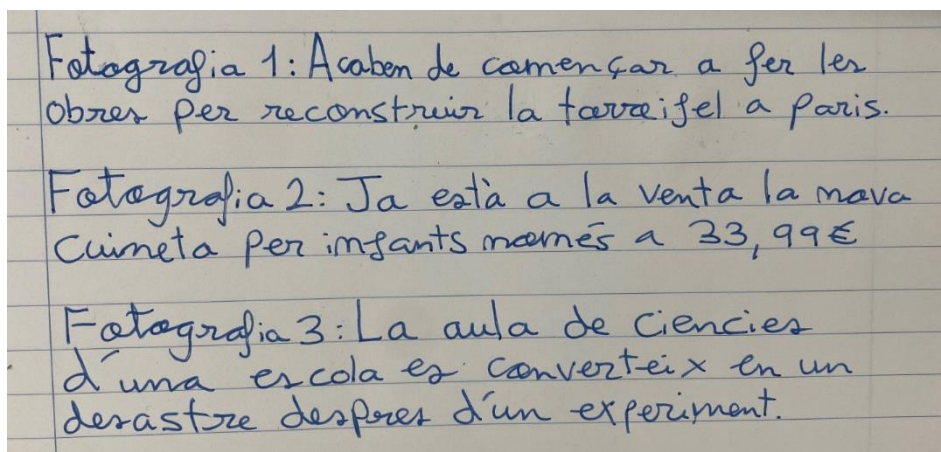 Fotografia 1: Acaben de començar a fer les
obres per reconstruir la torreifel a Paris.
Fotografia 2: Ja està a la venta la nova
Cuineta per infants només a 33,99€
Fotografia 3: La aula de Ciencies
d'una escola es converteix en un
desastre despres d'un experiment.